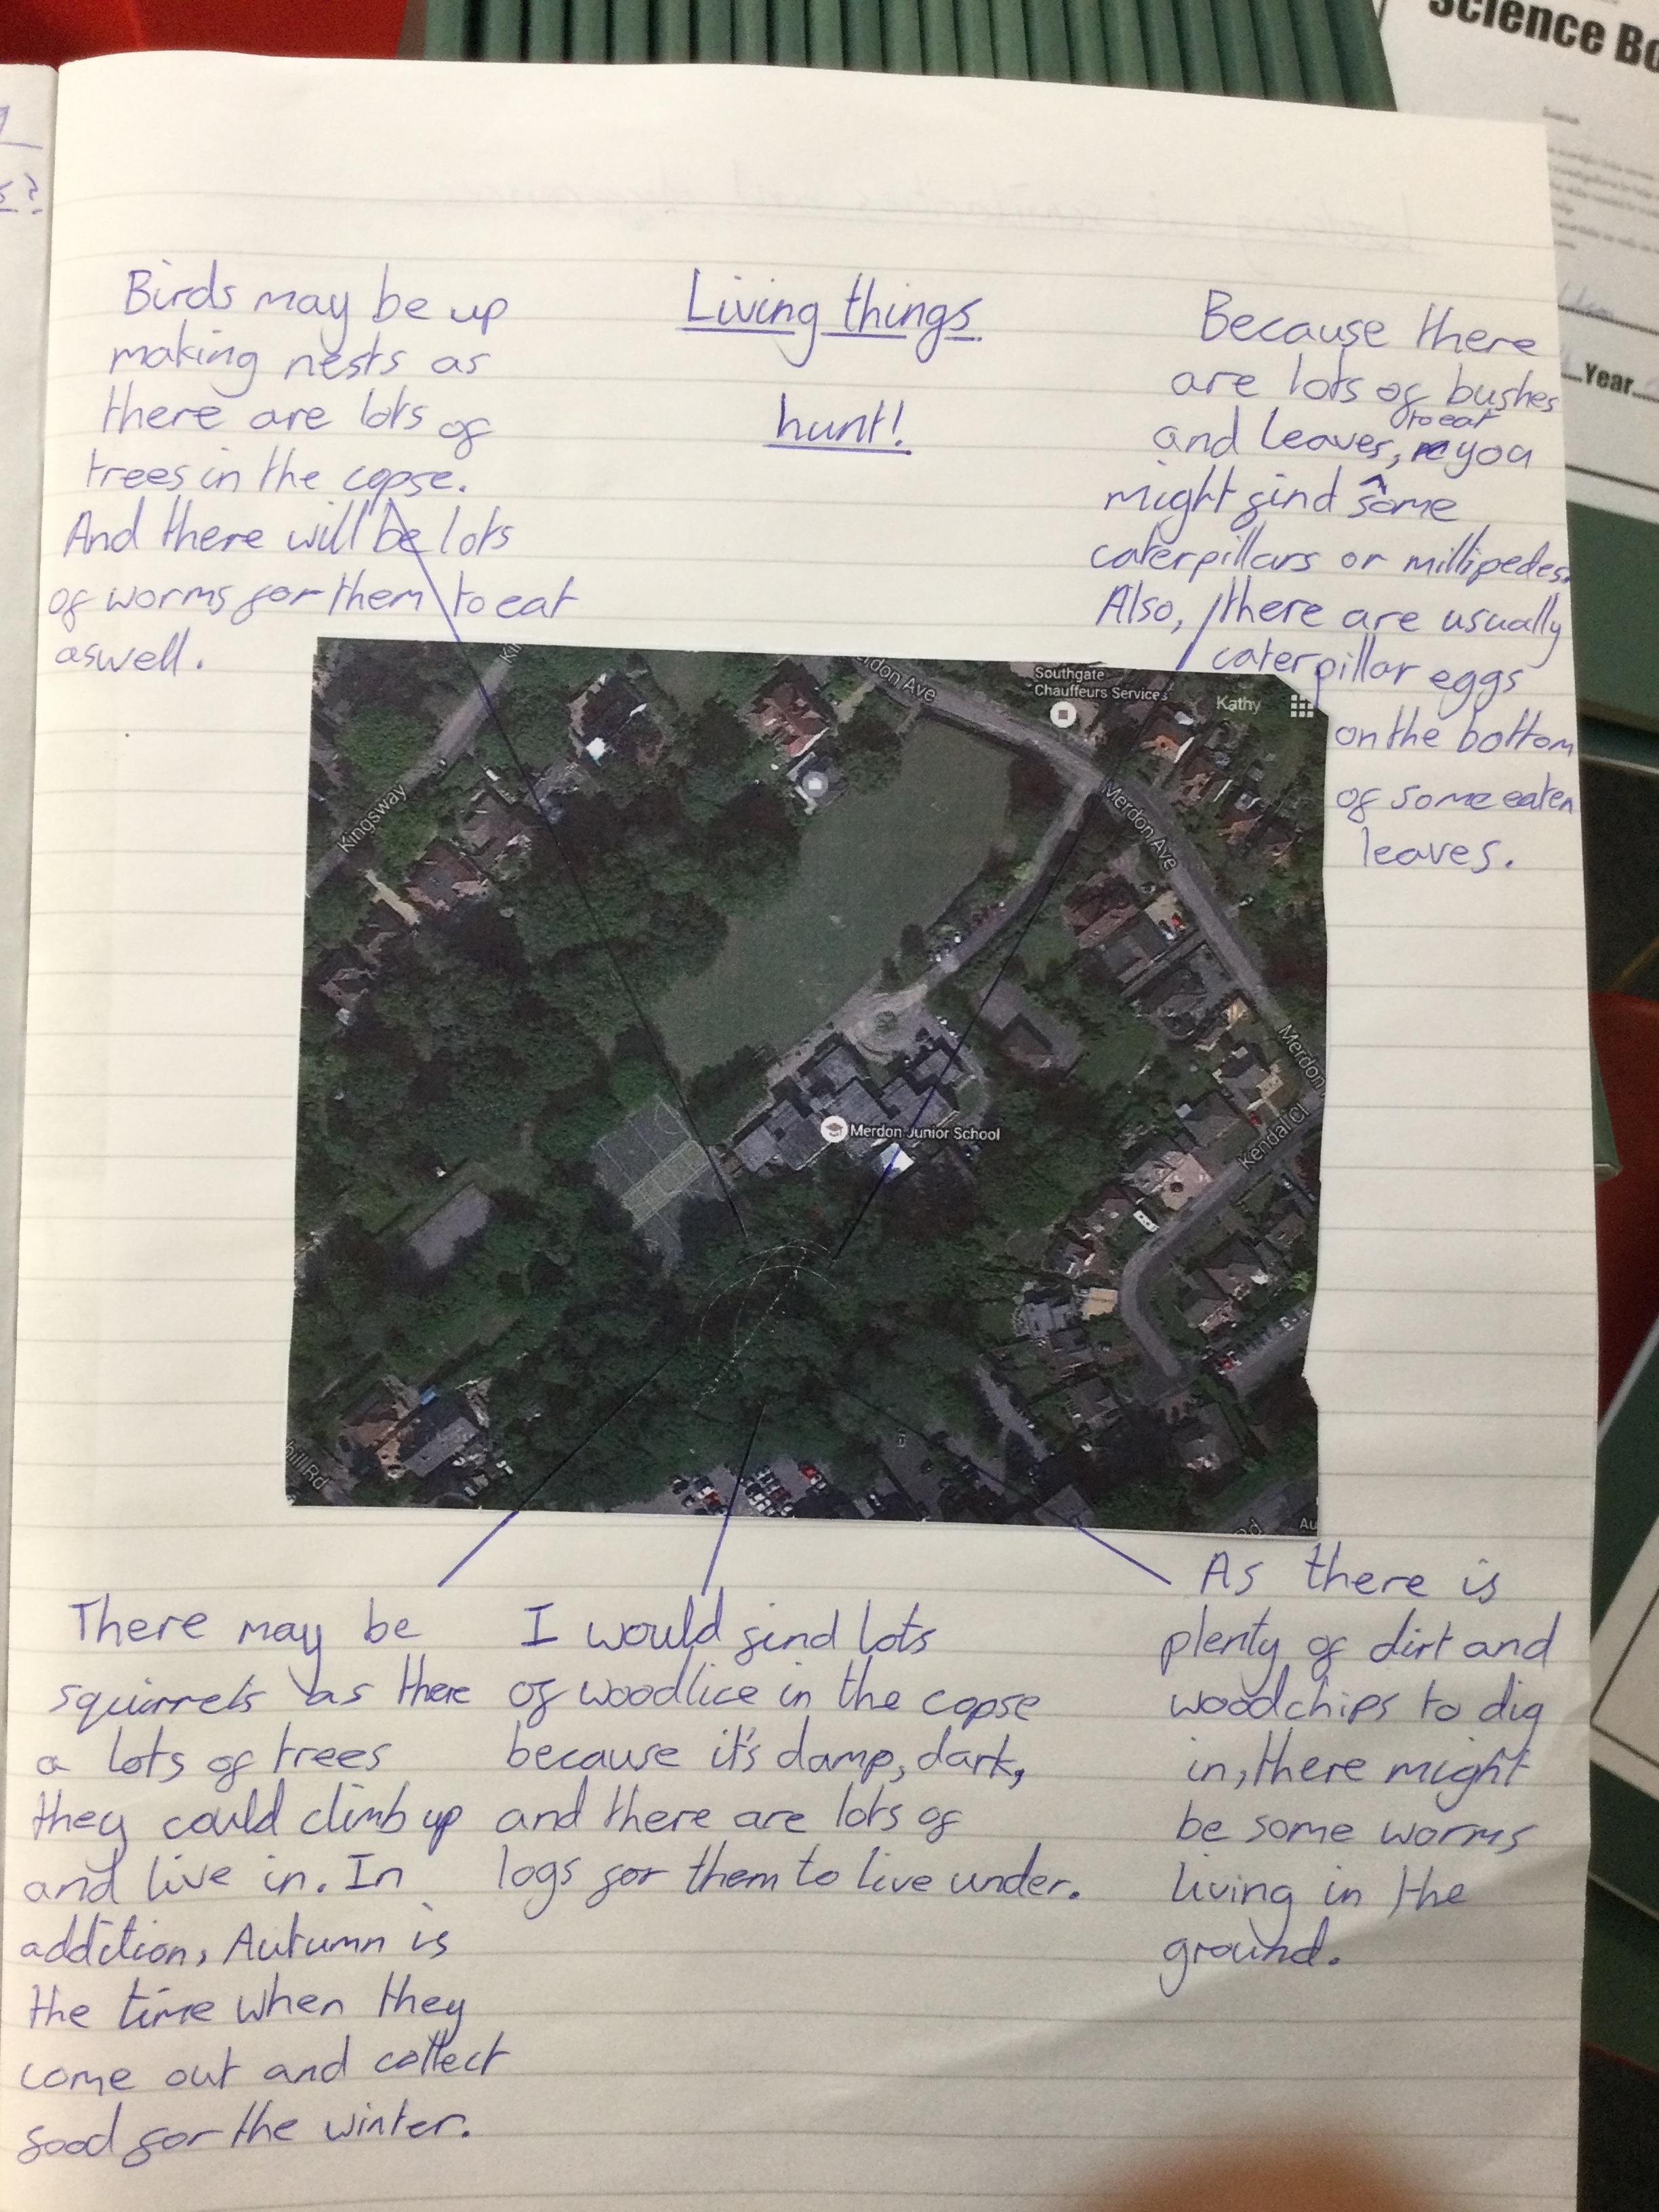 Science Bo
Year
s?
Living things
hunt!
Birds may be up
making nests as
there are lots of
trees in the copse.
And there will be lots
of worms for them to eat
aswell.
Because there
are lots of bushes
to eat
and leaves, you
might find some
caterpillars or millipedes.
Also, there are usually
caterpillar eggs
on the bottom
of some eaten
leaves.
Ki
rdon Ave
Southgate
Chauffeurs Services
Kathy
Kingsway
Merdon Ave
Merdon
Merdon Junior School
Kendal Cl
hill Rd
Rd
Au
There may be
squirrels as there
a lots of trees
they could climb up
and live in. In
addition, Autumn is
the time when they
come out and collect
food for the winter.
I would find lots
of woodlice in the copse
because it's damp, dark,
and there are lots of
logs for them to live under.
As there is
plenty of dirt and
woodchips to dig
in, there might
be some worms
living in the
ground.